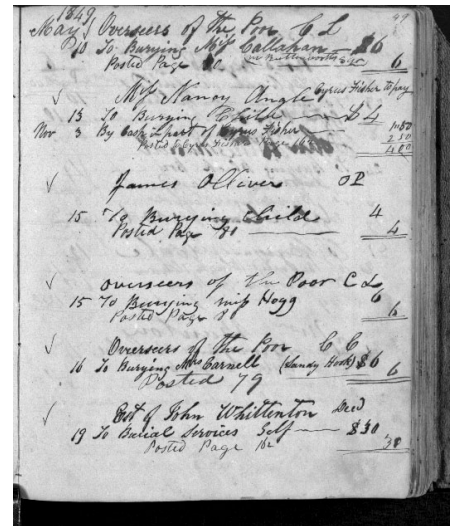 1849
May Overseers of the Poor C L
10 To Burying Miss Callahan $6
Posted Page 80 6
Miss Nancy Angle Cyrus Fisher to pay
13 To Burying Child $4
Nov 3 By Cash in part of Cyrus Fisher 1.50
Posted Cyrus Fisher 2 50
4 00
James Ollivers OP
15 To Burying Child 4
Posted Page 80 4
overseers of the Poor C L
15 To Burying miss Hogg 6
Posted Page 6
Overseers of the Poor C C
16 To Burying Mrs Carnell (Sandy Hook) $6 6
Posted 79
Est of John Whittenton Decd
19 To Burial Services Self $30
Posted Page